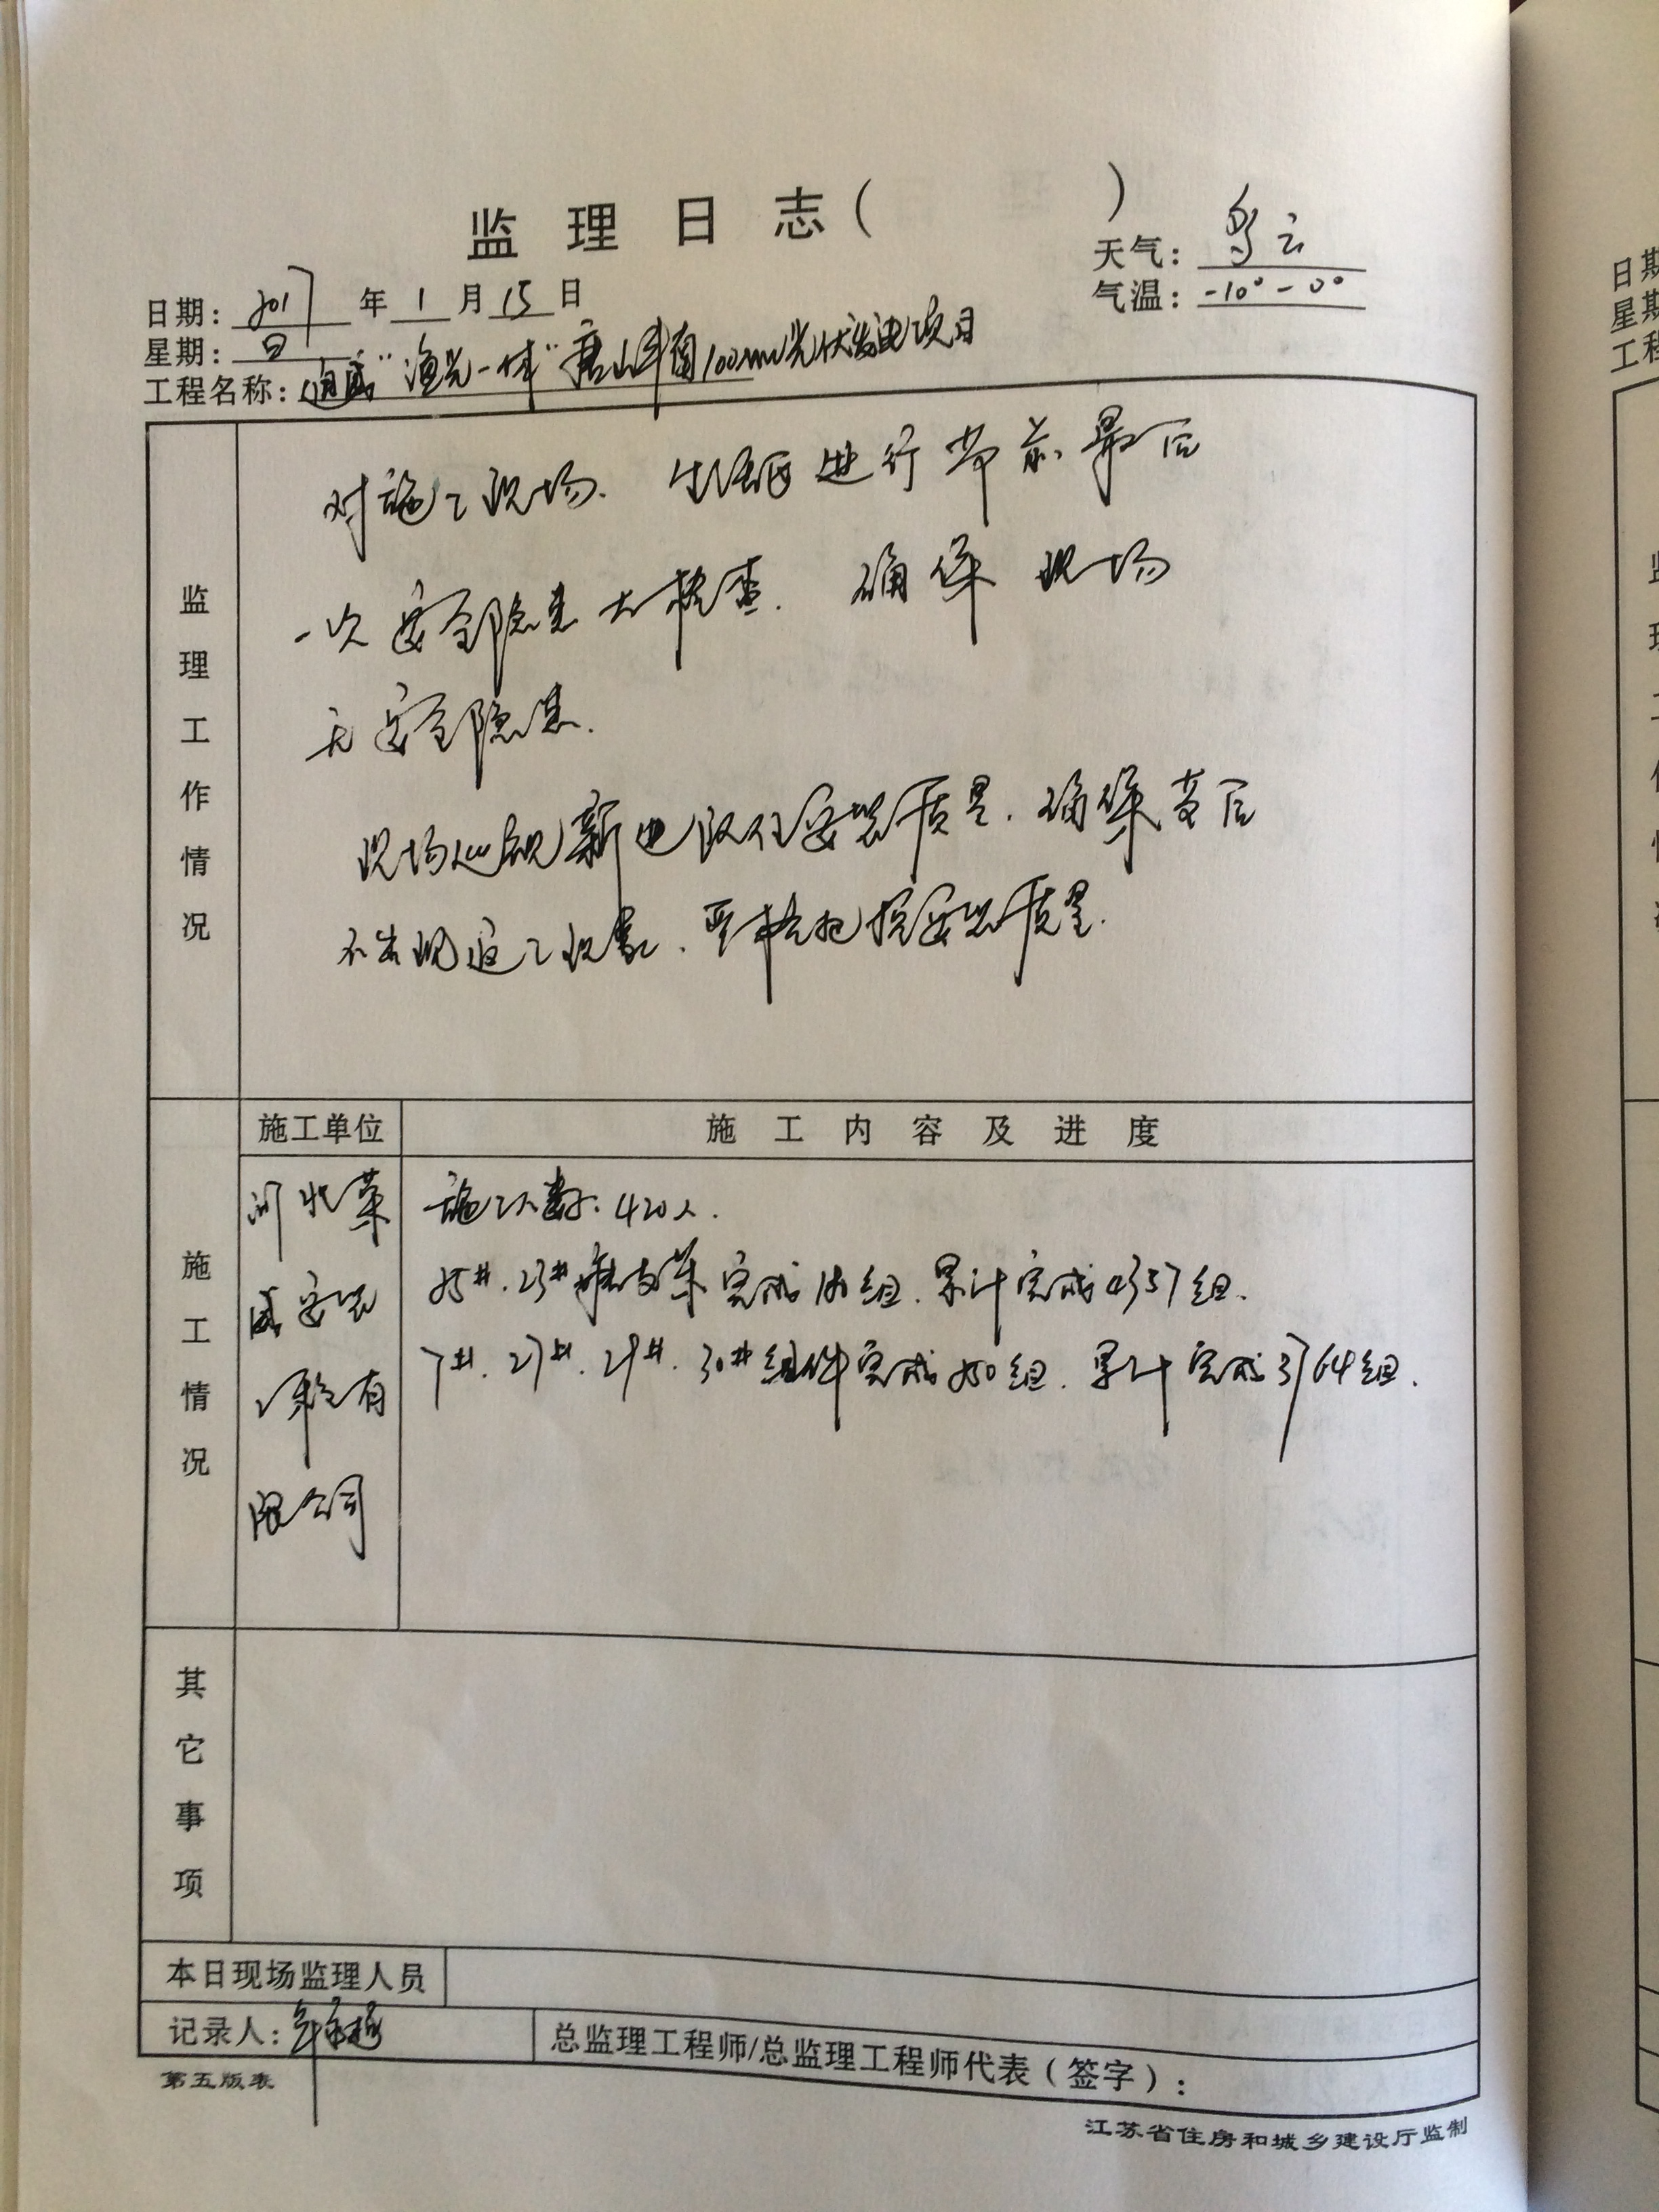 监理日志（ ）
天气：多云
气温：-10°-0°
日期：2017年1月15日
星期：日
工程名称：通威"渔光一体"唐山丰南100MW光伏发电项目
监理工作情况
对施工现场、生活区进行节前最后
一次安全隐患大检查，确保现场
无安全隐患.
现场巡视新进队伍安装质量，确保节后
不出现返工现象，严格把控安装质量.
施工单位
施工内容及进度
施工情况
河北荣
威安装
工程有
限公司
施工人数：420人.
25#、23#桩支架完成 组，累计完成4357组.
7#、27#、29#、30#组件完成250组，累计完成3764组.
其它事项
本日现场监理人员
记录人：
总监理工程师/总监理工程师代表（签字）：
第五版表
江苏省住房和城乡建设厅监制
日期
星期
工程